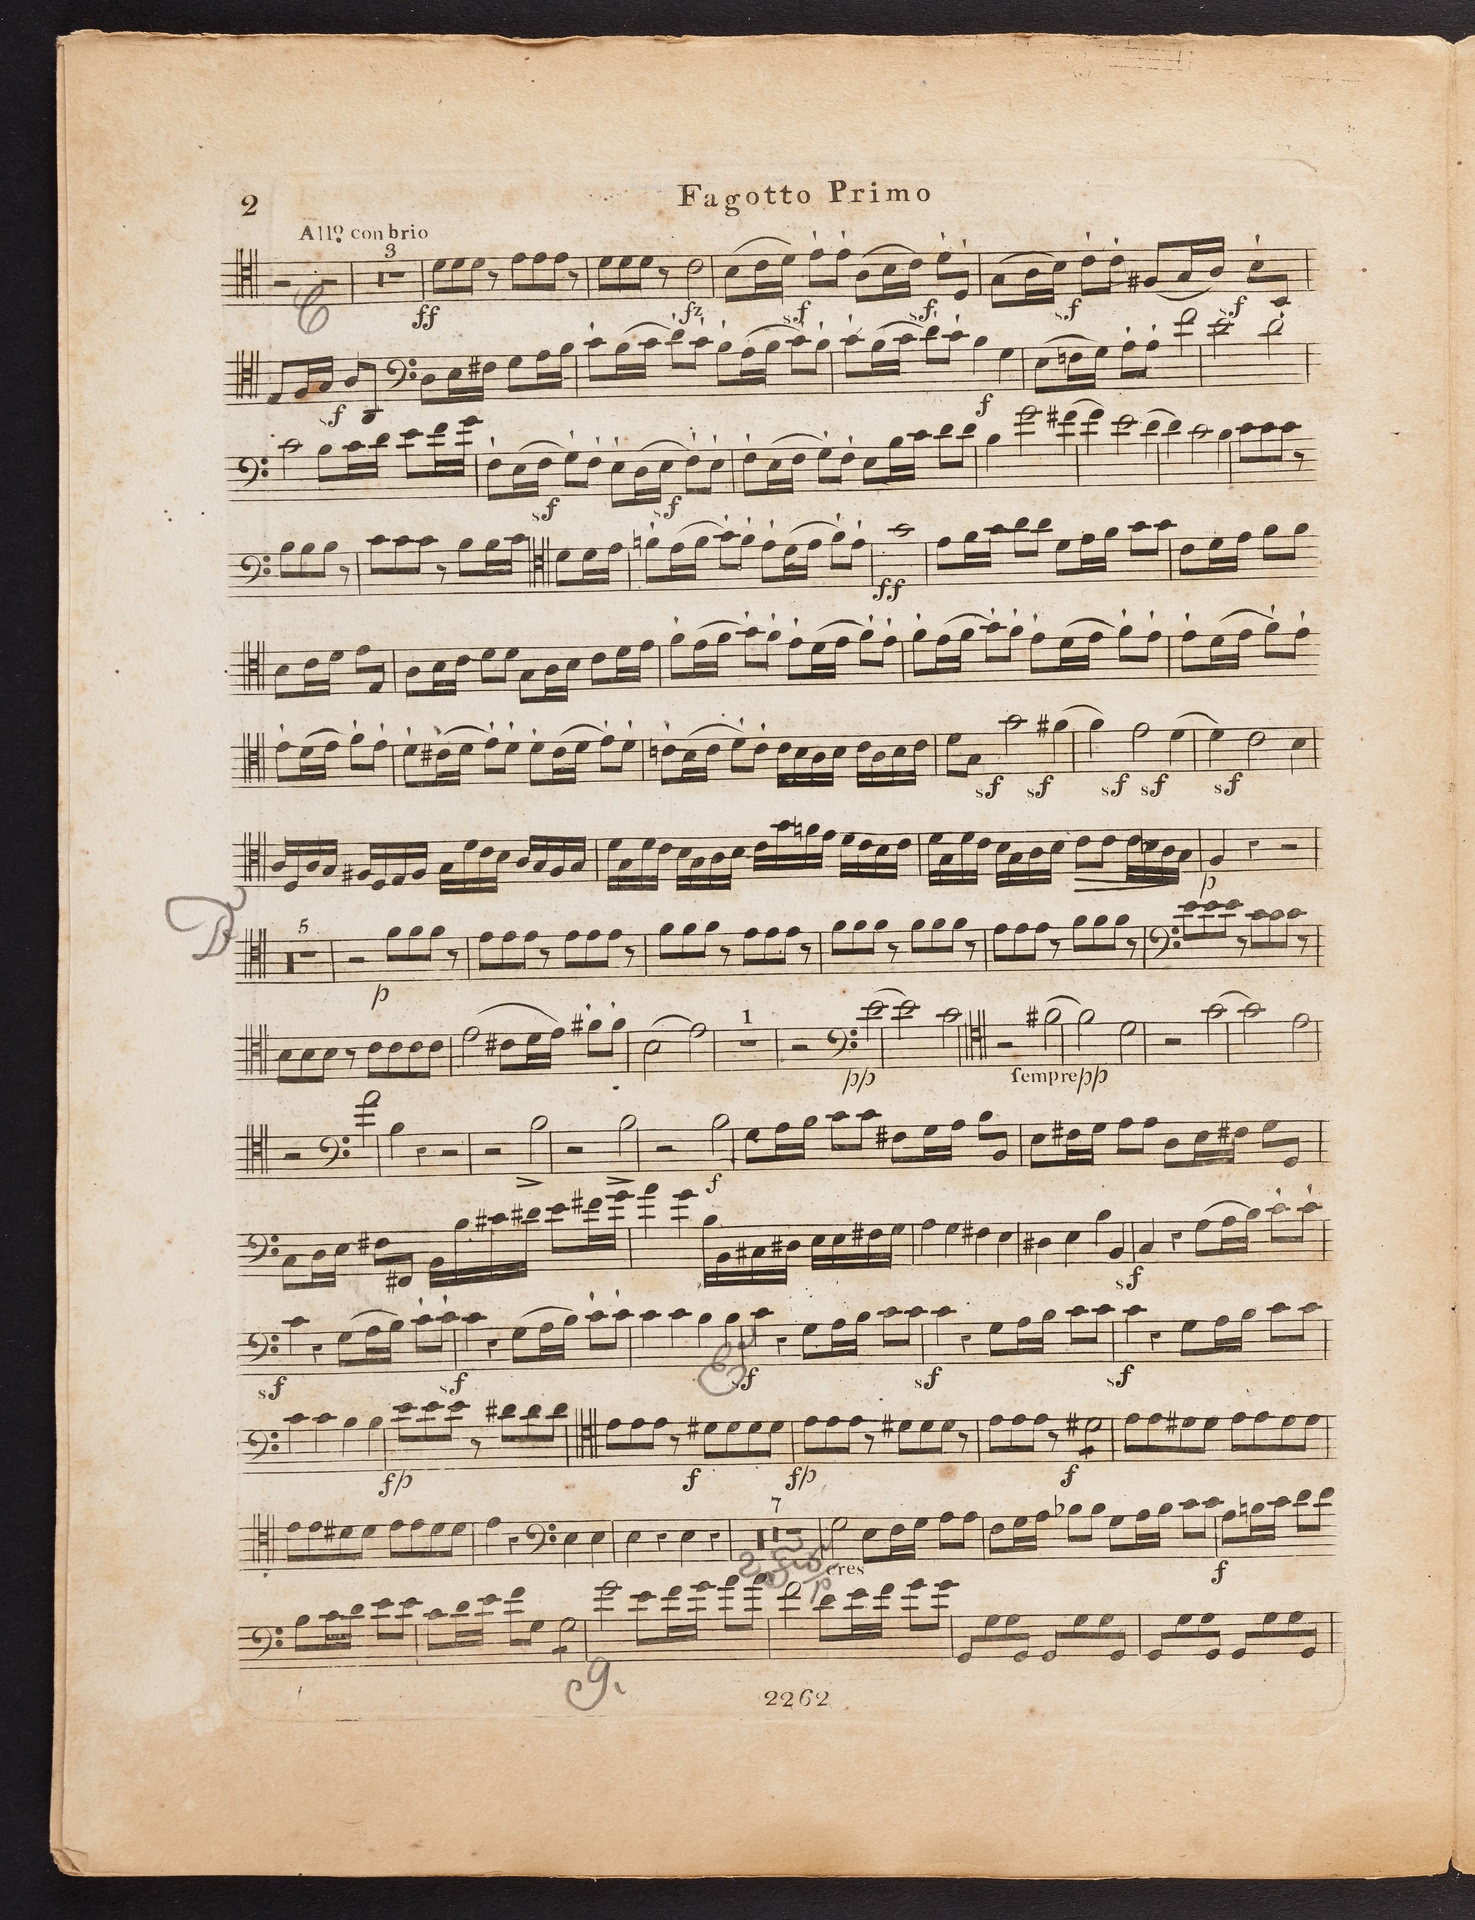 2
Fagotto Primo
All⁰. con brio
3
ff fz sf sf sf sf
C
sf f
sf sf
ff
sf sf sf sf sf
p
D
5
p
1
pp sempre pp
f
sf
sf sf sf sf sf
E
fp f fp f
7
cres f
p
g.
2262